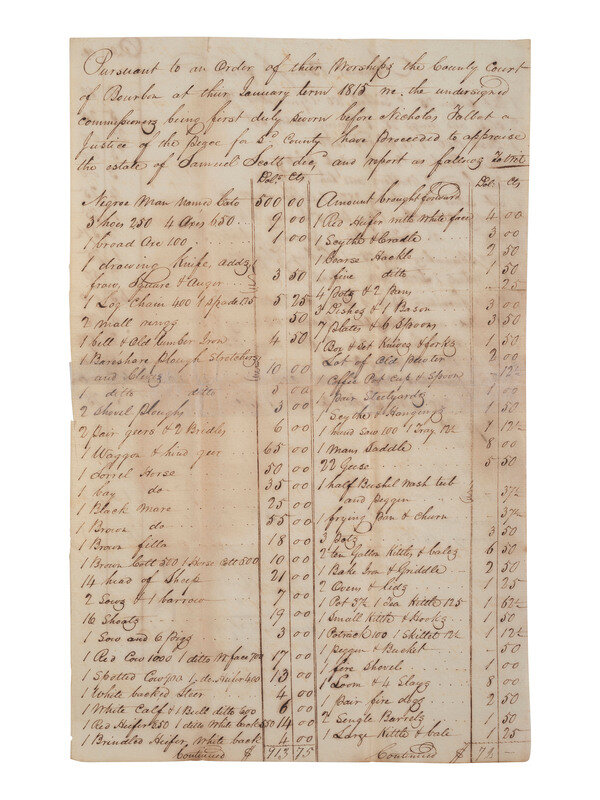 Pursuant to an Order of their Worships the County Court
of Bourbon at their January term 1815 we the undersigned
commissioners being first duly sworn before Nicholas Talbot a
Justice of the Peace for Sd County have Proceeded to appraise
the estate of Samuel Scott decd and report as follows To Wit
Dols Cts
Negroe Man Named Cato 500 00
3 hoes 250 4 Axes 650 9 00
1 broad Axe 100 1 00
1 drawing Knife, adds,
frow, Square & Auger 3 50
1 Log Chain 400 1 Spade 125 5 25
2 mall rings 50
1 bell & Old lumber Iron 4 50
1 Bareshare Plough Stretchers
and Clevis 10 00
1 ditto ditto 3 00
2 Shovel Ploughs 3 00
2 pair geers & 2 Bridles 6 00
1 Waggon & hind geer 65 00
1 Sorrel Horse 50 00
1 bay do 35 00
1 Black Mare 25 00
1 Brown do 55 00
1 Brown filly 18 00
1 Brown Colt 500 1 Horse Colt 500 10 00
14 head of Sheep 21 00
2 Sows & 1 barrow 7 00
16 Shoats 19 00
1 Sow and 6 Pigs 3 00
1 Red Cow 1000 1 ditto W. face 700 17 00
1 Spotted Cow 900 1 do Heifer 400 13 00
1 White backed Steer 4 00
1 White Calf & 1 Bull ditto 600 6 00
1 Red Heifer 850 1 ditto White back 550 14 00
1 Brindled Heifer, White back 4 00
Continued $ 913 75
Dol. Cts
Amount brought forward
1 Red Heifer with White face 4 00
1 Scythe & Cradle 3 00
1 Coarse Hackle 2 50
1 fine ditto 1 50
4 Pots & 2 Pans 25
3 Dishes & 1 Bason 3 00
7 Plates & 6 Spoons 3 50
1 Box & Set Knives & forks 1 50
Lot of Old Pewter 2 00
1 Coffee Pot Cup & Spoon 12½
1 pair Steelyards 1 00
1 Scythe & Hangings 1 50
1 hand Saw 100 1 Tray 12½ 1 12½
1 Mans Saddle 8 00
22 Geese 5 50
1 half Bushel Wash tub
and Peggin 37½
1 frying Pan & Churn 37½
3 Pots 3 50
2 ten Gallon Kettles & bales 6 50
1 Bake Iron & Griddle 2 50
2 Ovens & Lids 1 25
1 Pot 37½ 1 Tea Kettle 125 1 62½
1 Small Kettle & Hooks 1 50
1 Potrack 100 1 Skillet 12½ 1 12½
1 Peggin & Bucket 50
1 fire Shovel 1 00
1 Loom & 4 Slays 8 00
1 pair fire dogs 2 50
2 Single Barrels 1 50
1 Large Kettle & bale 1 25
Continued $ 72 —